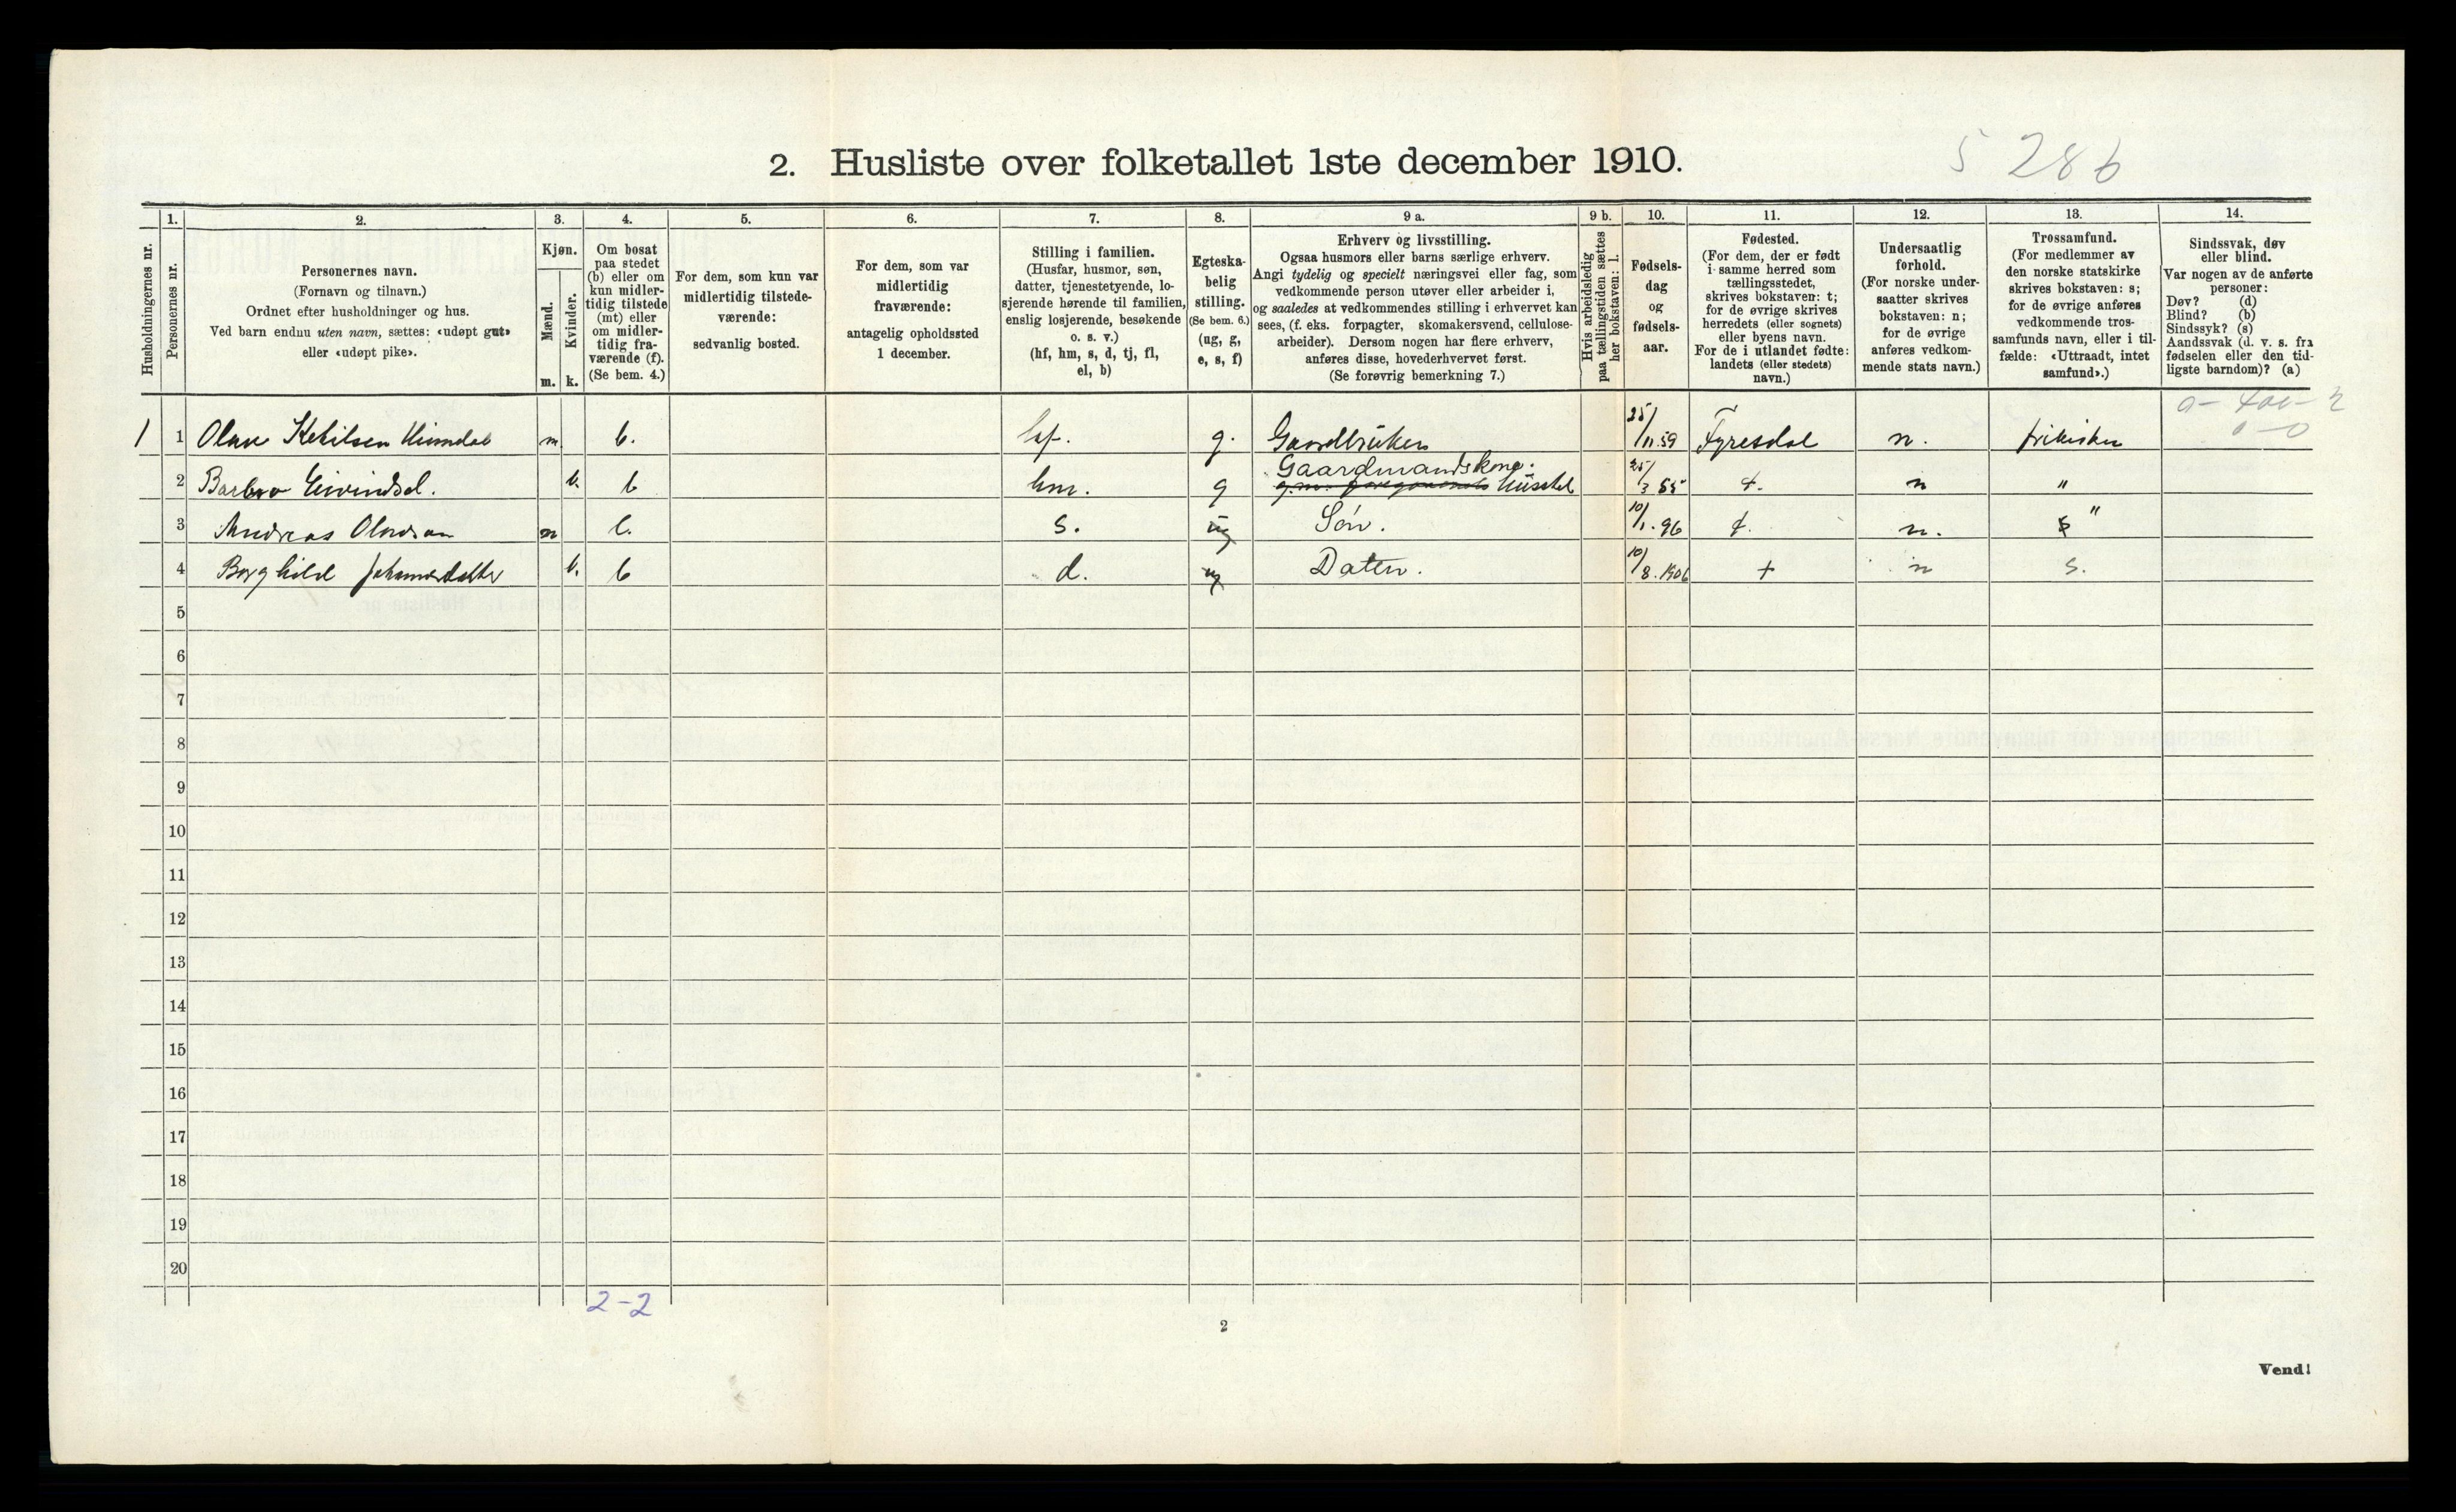 2. Husliste over folketallet 1ste december 1910.
5 286
Husholdningernes nr.
1.
Personernes nr.
2.
Personernes navn.
(Fornavn og tilnavn.)
Ordnet efter husholdninger og hus.
Ved barn endnu uten navn, sættes: «udøpt gut»
eller «udøpt pike».
3.
Kjøn.
Mænd.
Kvinder.
m. k.
4.
Om bosat
paa stedet
(b) eller om
kun midler-
tidig tilstede
(mt) eller
om midler-
tidig fra-
værende (f).
(Se bem. 4.)
5.
For dem, som kun var
midlertidig tilstede-
værende:
sedvanlig bosted.
6.
For dem, som var
midlertidig
fraværende:
antagelig opholdssted
1 december.
7.
Stilling i familien.
(Husfar, husmor, søn,
datter, tjenestetyende, lo-
sjerende hørende til familien,
enslig losjerende, besøkende
o. s. v.)
(hf, hm, s, d, tj, fl,
el, b)
8.
Egteska-
belig
stilling.
(Se bem. 6.)
(ug, g,
e, s, f)
9 a.
Erhverv og livsstilling.
Ogsaa husmors eller barns særlige erhverv.
Angi tydelig og specielt næringsvei eller fag, som
vedkommende person utøver eller arbeider i,
og saaledes at vedkommendes stilling i erhvervet kan
sees, (f. eks. forpagter, skomakersvend, cellulose-
arbeider). Dersom nogen har flere erhverv,
anføres disse, hovederhvervet først.
(Se forøvrig bemerkning 7.)
9 b.
Hvis arbeidsledig
paa tællingstiden sættes
her bokstaven: l.
10.
Fødsels-
dag
og
fødsels-
aar.
11.
Fødested.
(For dem, der er født
i samme herred som
tællingsstedet,
skrives bokstaven: t;
for de øvrige skrives
herredets (eller sognets)
eller byens navn.
For de i utlandet fødte:
landets (eller stedets)
navn.)
12.
Undersaatlig
forhold.
(For norske under-
saatter skrives
bokstaven: n;
for de øvrige
anføres vedkom-
mende stats navn.)
13.
Trossamfund.
(For medlemmer av
den norske statskirke
skrives bokstaven: s;
for de øvrige anføres
vedkommende tros-
samfunds navn, eller i til-
fælde: «Uttraadt, intet
samfund».)
14.
Sindssvak, døv
eller blind.
Var nogen av de anførte
personer:
Døv? (d)
Blind? (b)
Sindssyk? (s)
Aandssvak (d. v. s. fra
fødselen eller den tid-
ligste barndom)? (a)
1 1 Olav Ketilsen m b. hf. g. Gaardbruker 25/11.59 Fyresdal n. frikirken
2 Barbro Eivindsd. k. b hm. g Gaardmandskone. 25/3 55 t. n "
3 Andreas Olavson m b. s. ug Søn. 10/1.96 t. n. "
4 Borghild k. b d. ug Daten. 10/8.1906 t n s.
5
6
7
8
9
10
11
12
13
14
15
16
17
18
19
20
2-2
2
Vend!